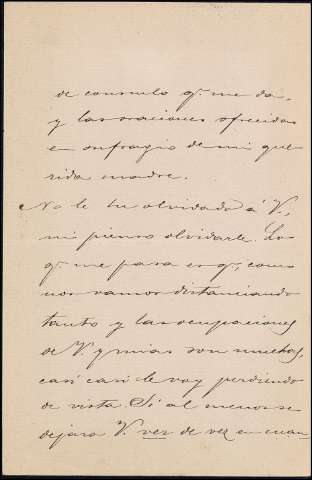 de consuelo q. me da,
y las oraciones ofrecidas
en sufragio de mi que-
rida madre.
No le he olvidado á V.,
ni pienso olvidarle. Lo
q. me pasa es q., como
nos vamos distanciando
tanto y las ocupaciones
de V. y mias son muchas,
casi casi le voy perdiendo
de vista. Si al menos se
dejara V. ver de vez en cuan-